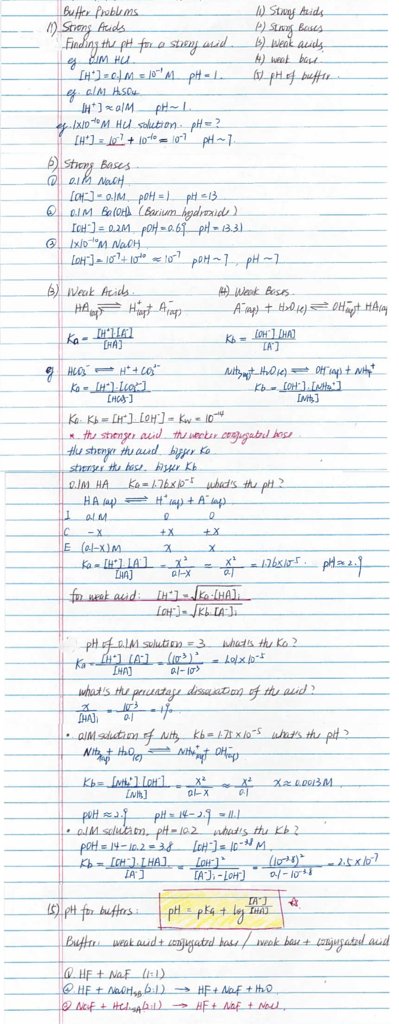 Buffer Problems
(1) Strong Acids
(2) Strong Bases
(3) weak acids
(4) weak base
(5) pH of buffer
(1) Strong Acids
Finding the pH for a strong acid.
eg. 0.1M HCl
[H⁺] = 0.1M = 10⁻¹ M pH = 1.
eg. 0.1M H₂SO₄
[H⁺] ≈ 0.1M pH ~ 1.
eg. 1x10⁻¹⁰M HCl solution. pH = ?
[H⁺] = 10⁻⁷ + 10⁻¹⁰ ≈ 10⁻⁷ pH ~ 7.
(2) Strong Bases
① 0.1M NaOH
[OH⁻] = 0.1M, pOH = 1 pH = 13
② 0.1M Ba(OH)₂ (Barium hydroxide)
[OH⁻] = 0.2M, pOH = 0.69 pH = 13.31
③ 1x10⁻¹⁰M NaOH
[OH⁻] = 10⁻⁷ + 10⁻¹⁰ ≈ 10⁻⁷ pOH ~ 7, pH ~ 7
(3) Weak Acids.
HA(aq) ⇌ H⁺(aq) + A⁻(aq)
Ka = [H⁺].[A⁻] / [HA]
(4) Weak Bases.
A⁻(aq) + H₂O(l) ⇌ OH⁻(aq) + HA(aq
Kb = [OH⁻].[HA] / [A⁻]
eg HCO₃⁻ ⇌ H⁺ + CO₃²⁻
Ka = [H⁺].[CO₃²⁻] / [HCO₃⁻]
NH₃(aq) + H₂O(l) ⇌ OH⁻(aq) + NH₄⁺
Kb = [OH⁻].[NH₄⁺] / [NH₃]
Ka · Kb = [H⁺].[OH⁻] = Kw = 10⁻¹⁴
* the stronger acid the weaker conjugated base
the stronger the acid bigger Ka
stronger the base. bigger Kb
0.1M HA Ka = 1.76x10⁻⁵ what's the pH?
HA (aq) ⇌ H⁺(aq) + A⁻(aq)
I 0.1M 0 0
C -x +x +x
E (0.1-x)M x x
Ka = [H⁺].[A⁻] / [HA] = x² / 0.1-x ≈ x² / 0.1 = 1.76x10⁻⁵. pH ≈ 2.9
for weak acid: [H⁺] = √Ka·[HA]i
[OH⁻] = √Kb·[A⁻]i
pH of 0.1M solution = 3 what's the Ka?
Ka = [H⁺].[A⁻] / [HA] = (10⁻³)² / 0.1-10⁻³ = 1.01x10⁻⁵
what's the percentage dissociation of the acid?
x / [HA]i = 10⁻³ / 0.1 = 1%
• 0.1M solution of NH₃ Kb = 1.75x10⁻⁵ what's the pH?
NH₃(aq) + H₂O(l) ⇌ NH₄⁺(aq) + OH⁻(aq)
Kb = [NH₄⁺].[OH⁻] / [NH₃] = x² / 0.1-x ≈ x² / 0.1 x ≈ 0.0013M
pOH ≈ 2.9 pH = 14 - 2.9 = 11.1
• 0.1M solution, pH = 10.2 what's the Kb?
pOH = 14 - 10.2 = 3.8 [OH⁻] = 10⁻³·⁸ M
Kb = [OH⁻].[HA] / [A⁻] = [OH⁻]² / [A⁻]i - [OH⁻] = (10⁻³·⁸)² / 0.1 - 10⁻³·⁸ = 2.5x10⁻⁷
(5) pH for buffers: pH = pKa + log [A⁻] / [HA]
Buffer: weak acid + conjugated base / weak base + conjugated acid
① HF + NaF (1:1)
② HF + NaOH (2:1) → HF + NaF + H₂O
③ NaF + HCl (2:1) → HF + NaF + NaCl